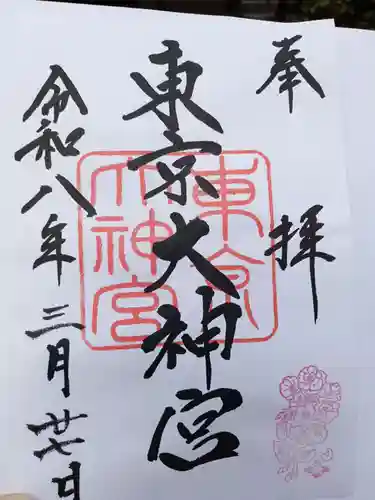 奉拝
東京大神宮
東京大神宮
令和八年三月廿七日